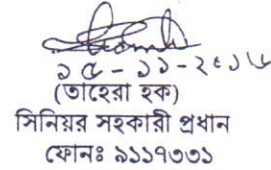 ১৫-১১-২০১৬
(তাহেরা হক)
সিনিয়র সহকারী প্রধান
ফোনঃ ৯১১৭৩৩১